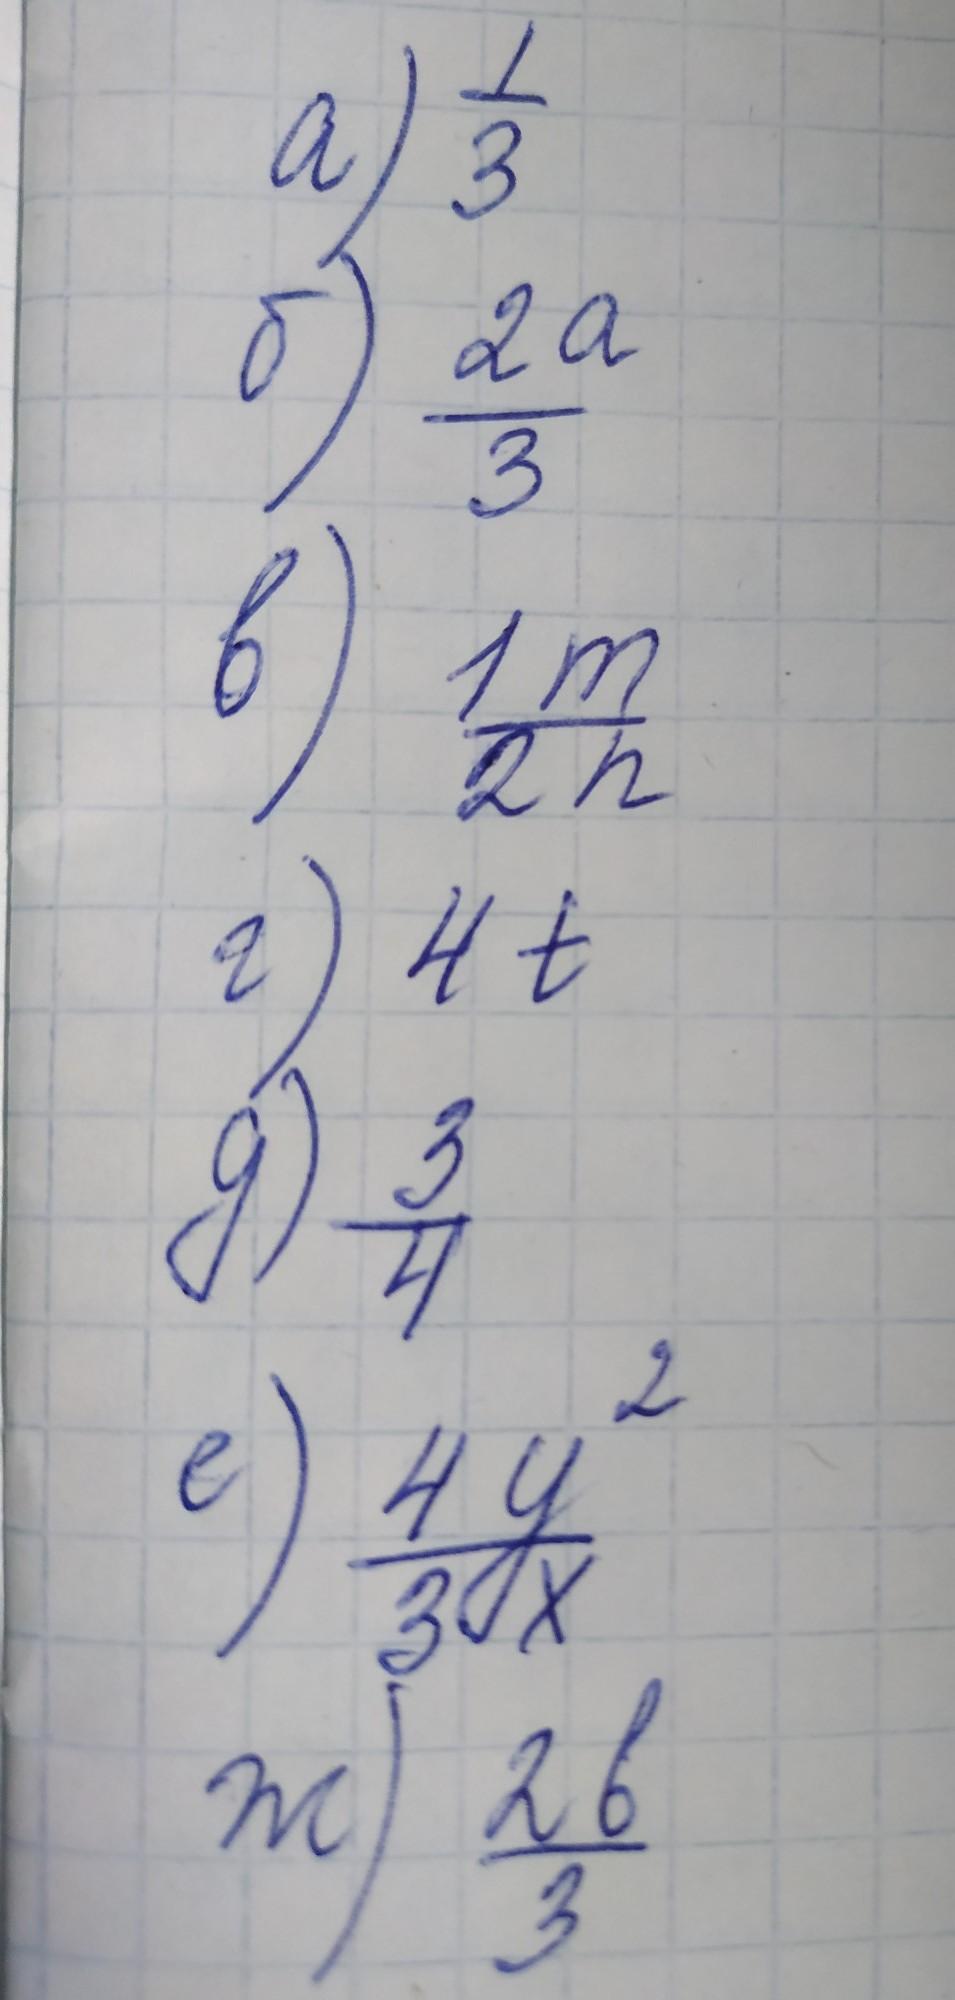 а) 1/3
б) 2a/3
в) 1m/2n
г) 4t
д) 3/4
е) 4y²/3x
ж) 2b/3